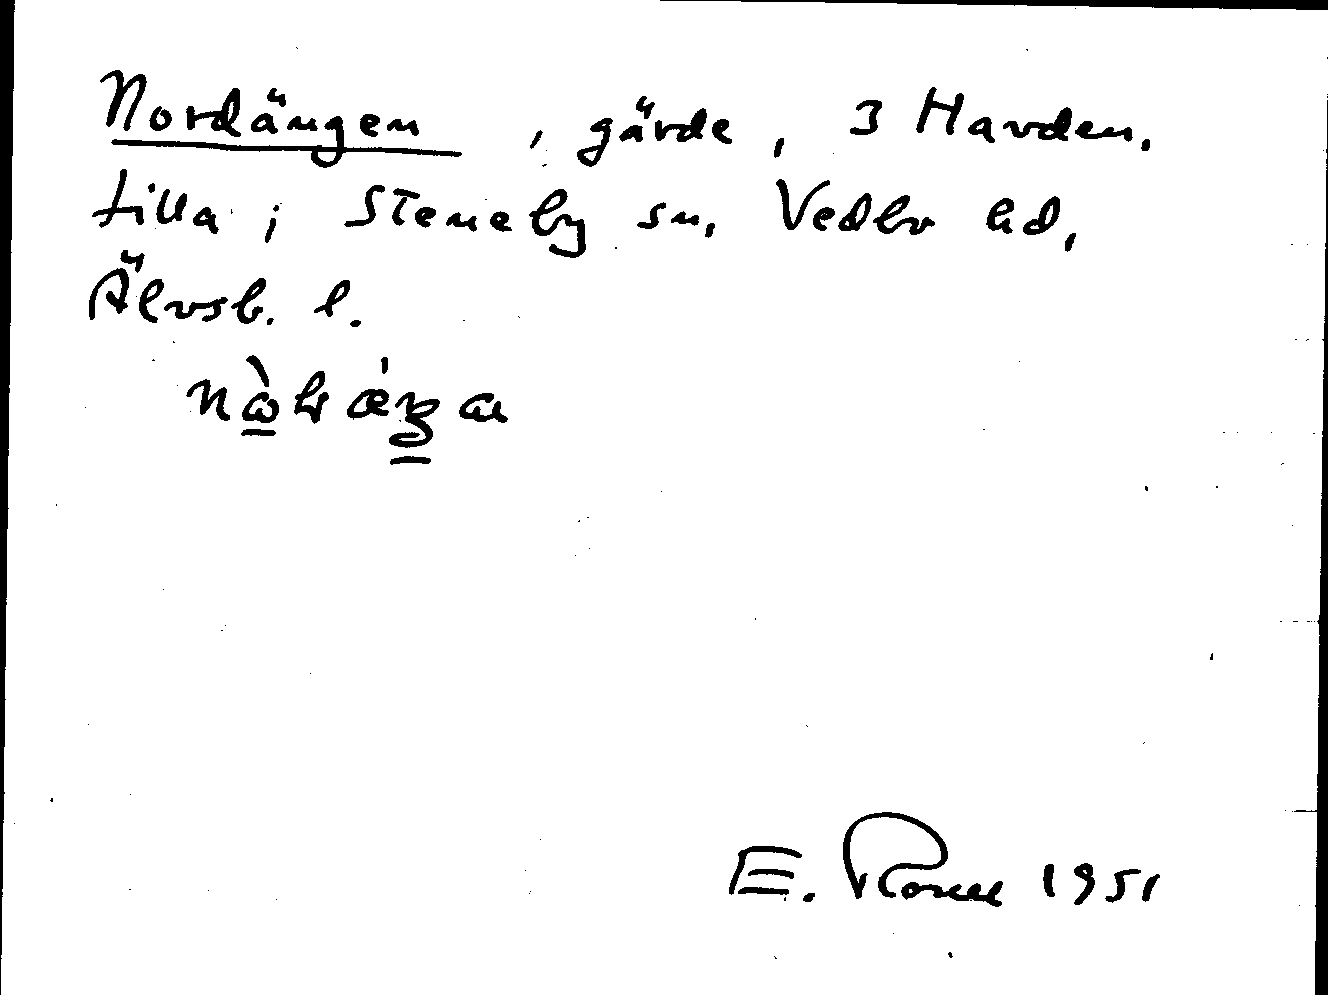 Nordängen, gärde, 3 Harden.
tilla i Steneby sn, Vedbo hd,
Älvsb. l.
E. 1951